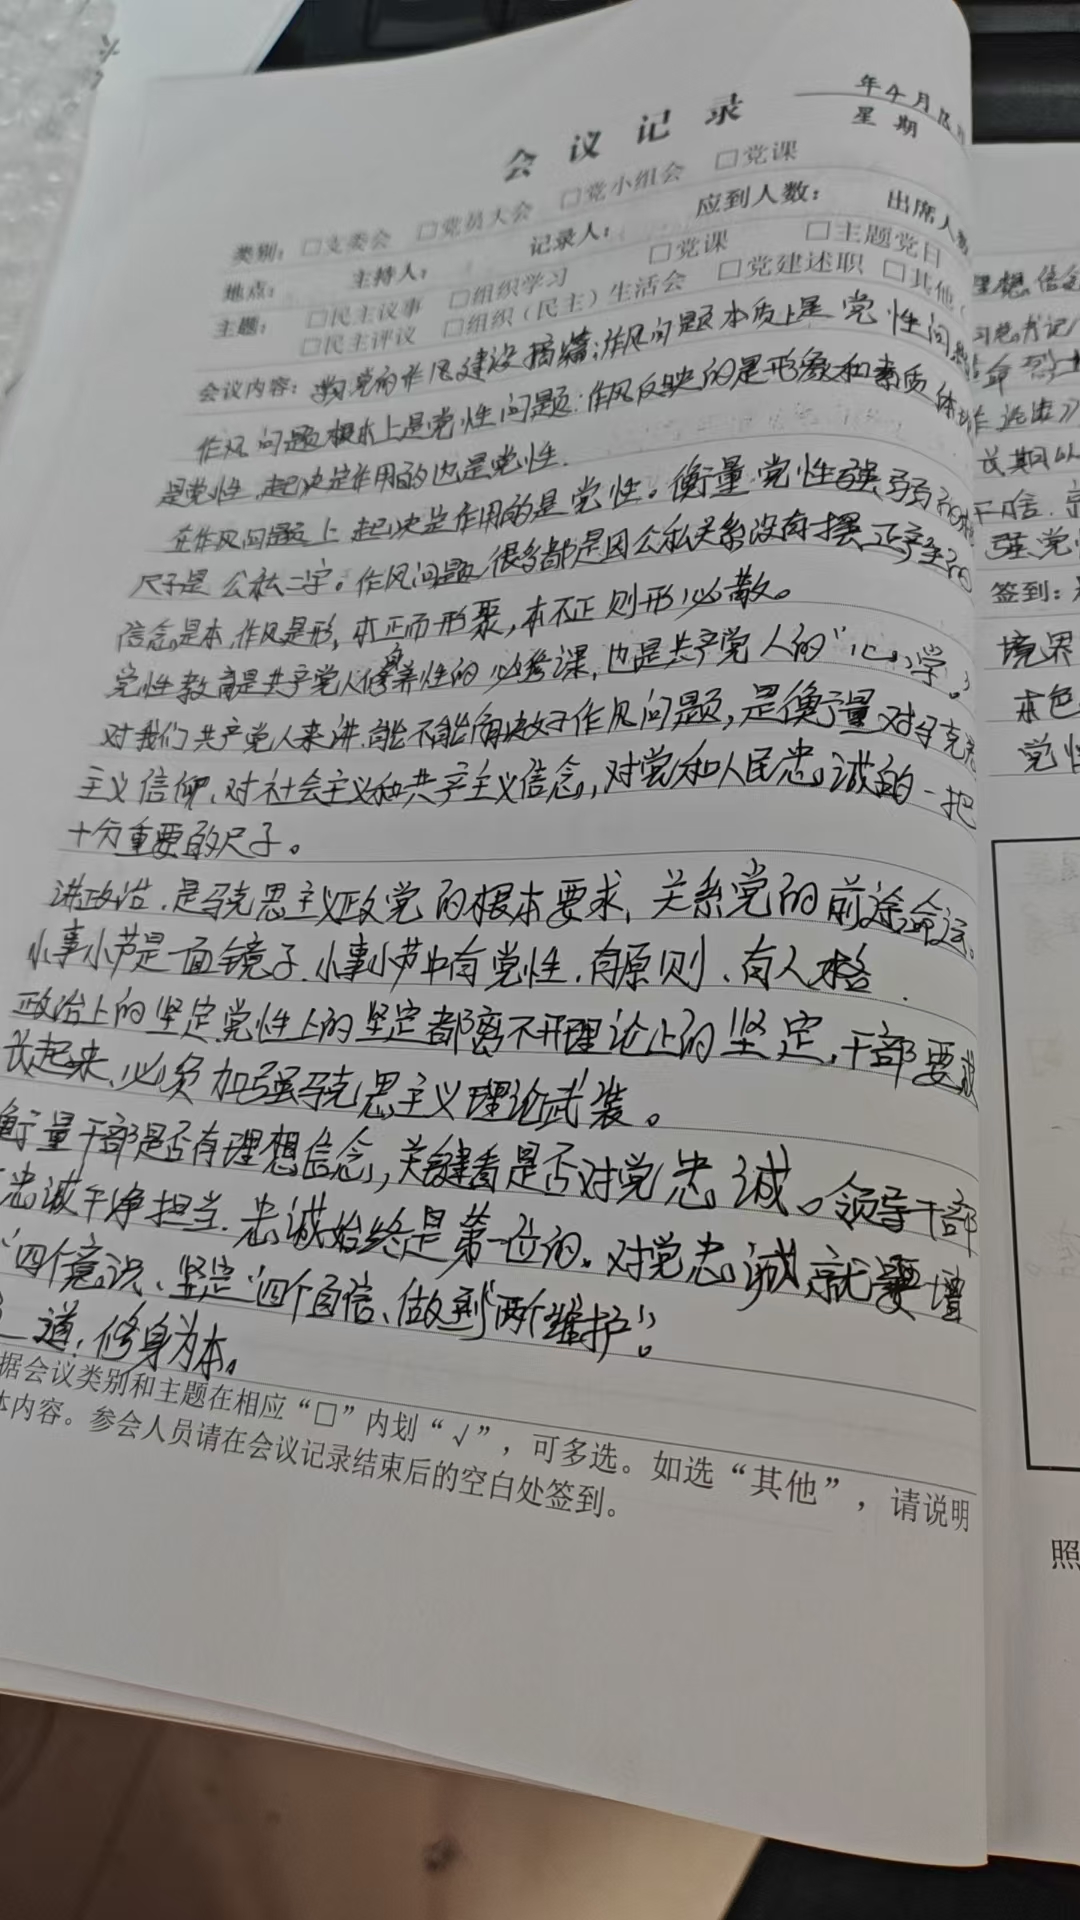 会议记录
年4月18日
星期
类别：□支委会 □党员大会 □党小组会 □党课
地点： 主持人： 记录人： 应到人数： 出席人数
主题： □民主议事 □组织学习 □党课 □主题党日
□民主评议 □组织（民主）生活会 □党建述职 □其他（
会议内容：党的作风建设摘编：作风问题本质上是党性问题
作风问题根本上是党性问题：作风反映的是形象和素质 体现
是党性，起决定作用的也是党性．
在作风问题上 起决定作用的是党性。衡量党性强弱的根
尺子是 公私二字。作风问题 很多都是因公私关系没有摆正产生的
信念是本，作风是形，本正而形聚，本不正则形必散。
党性教育是共产党人修身养性的必修课，也是共产党人的“心学”
对我们共产党人来讲，能不能解决好作风问题，是衡量对马克思
主义信仰、对社会主义和共产主义信念，对党和人民忠诚的一把
十分重要的尺子。
讲政治，是马克思主义政党的根本要求，关系党的前途命运。
小事小节是一面镜子，小事小节中有党性，有原则、有人格．
政治上的坚定党性上的坚定都离不开理论上的坚定，干部要成
长起来，必须加强马克思主义理论武装。
衡量干部是否有理想信念，关键看是否对党忠诚。领导干部
忠诚干净担当，忠诚始终是第一位的。对党忠诚，就要增
“四个意识、坚定“四个自信、做到“两个维护”。
之道，修身为本。
据会议类别和主题在相应“□”内划“√”，可多选。如选“其他”，请说明
体内容。参会人员请在会议记录结束后的空白处签到。
理想信念
习总书记
革命烈士
长期以
不信
强党
签到：
境界
本色
党性
照